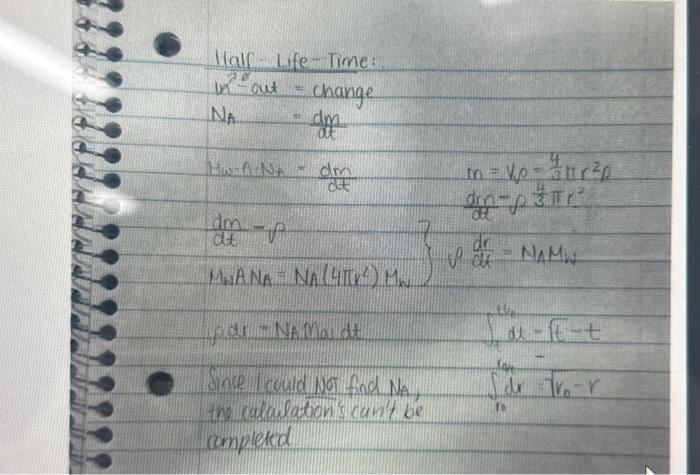 Half-Life-Time:
in - out = change
NA = dm/dt
Mw·A·NA = dm/dt
m = Vρ = 4/3 πr²ρ
dm/dt = ρ 4/3 πr²
dm/dt = ρ
ρ dr/dt = NAMW
MWANA = NA(4πr²) MW
ρdr = NA Ma dt
dt = √t - t
dr = √r₀ - r
Since I could NOT find NA,
the calculation's can't be
completed